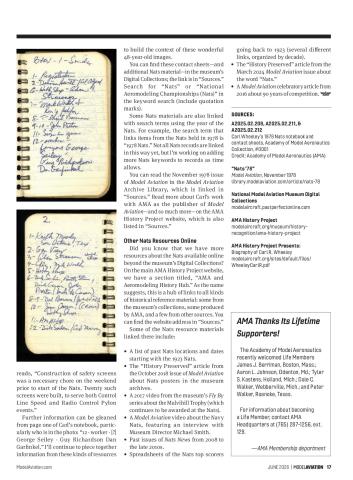 to build the context of these wonderful
48-year-old images.
You can find these contact sheets—and
additional Nats material—in the museum's
Digital Collections; the link is in "Sources."
Search for "Nats" or "National
Aeromodeling Championships (Nats)" in
the keyword search (include quotation
marks).
Some Nats materials are also linked
with search terms using the year of the
Nats. For example, the search term that
links items from the Nats held in 1978 is
"1978 Nats." Not all Nats records are linked
in this way yet, but I'm working on adding
more Nats keywords to records as time
allows.
You can read the November 1978 issue
of Model Aviation in the Model Aviation
Archive Library, which is linked in
"Sources." Read more about Carl's work
with AMA as the publisher of Model
Aviation—and so much more—on the AMA
History Project website, which is also
listed in "Sources."
Other Nats Resources Online
Did you know that we have more
resources about the Nats available online
beyond the museum's Digital Collections?
On the main AMA History Project website,
we have a section titled, "AMA and
Aeromodeling History Hub." As the name
suggests, this is a hub of links to all kinds
of historical reference material: some from
the museum's collections, some produced
by AMA, and a few from other sources. You
can find the website address in "Sources."
Some of the Nats resource materials
linked there include:
• A list of past Nats locations and dates
starting with the 1923 Nats.
• The "History Preserved" article from
the October 2018 issue of Model Aviation
about Nats posters in the museum
archives.
• A 2017 video from the museum's Fly By
series about the Mulvihill Trophy (which
continues to be awarded at the Nats).
• A Model Aviation video about the Navy
Nats, featuring an interview with
Museum Director Michael Smith.
• Past issues of Nats News from 2008 to
the late 2010s.
• Spreadsheets of the Nats top scorers
going back to 1923 (several different
links, organized by decade).
• The "History Preserved" article from the
March 2024 Model Aviation issue about
the word "Nats."
• A Model Aviation celebratory article from
2016 about 90 years of competition.
SOURCES:
A2025.02.208, A2025.02.211, &
A2025.02.212
Carl Wheeley's 1978 Nats notebook and
contact sheets, Academy of Model Aeronautics
Collection, #0001
Credit: Academy of Model Aeronautics (AMA)
"Nats '78"
Model Aviation, November 1978
library.modelaviation.com/article/nats-78
National Model Aviation Museum Digital
Collections
modelaircraft.pastperfectonline.com
AMA History Project
modelaircraft.org/museum/history-
recognition/ama-history-project
AMA History Project Presents:
Biography of Carl R. Wheeley
modelaircraft.org/sites/default/files/
WheeleyCarlR.pdf
AMA Thanks Its Lifetime
Supporters!
The Academy of Model Aeronautics
recently welcomed Life Members
James J. Berriman, Boston, Mass.;
Aaron L. Johnson, Odenton, Md.; Tyler
S. Kastens, Holland, Mich.; Dale C.
Walker, Webberville, Mich.; and Peter
Walker, Roanoke, Texas.
For information about becoming
a Life Member, contact AMA
Headquarters at (765) 287-1256, ext.
129.
—AMA Membership department
reads, "Construction of safety screens
was a necessary chore on the weekend
prior to start of the Nats. Twenty such
screens were built, to serve both Control
Line Speed and Radio Control Pylon
events."
Further information can be gleaned
from page one of Carl's notebook, partic-
ularly who is in the photo: "12 - worker - [?]
George Seiley - Guy Richardson Dan
Garfinkel." I'll continue to piece together
information from these kinds of resources
ModelAviation.com
JUNE 2026 | MODELAVIATION 17